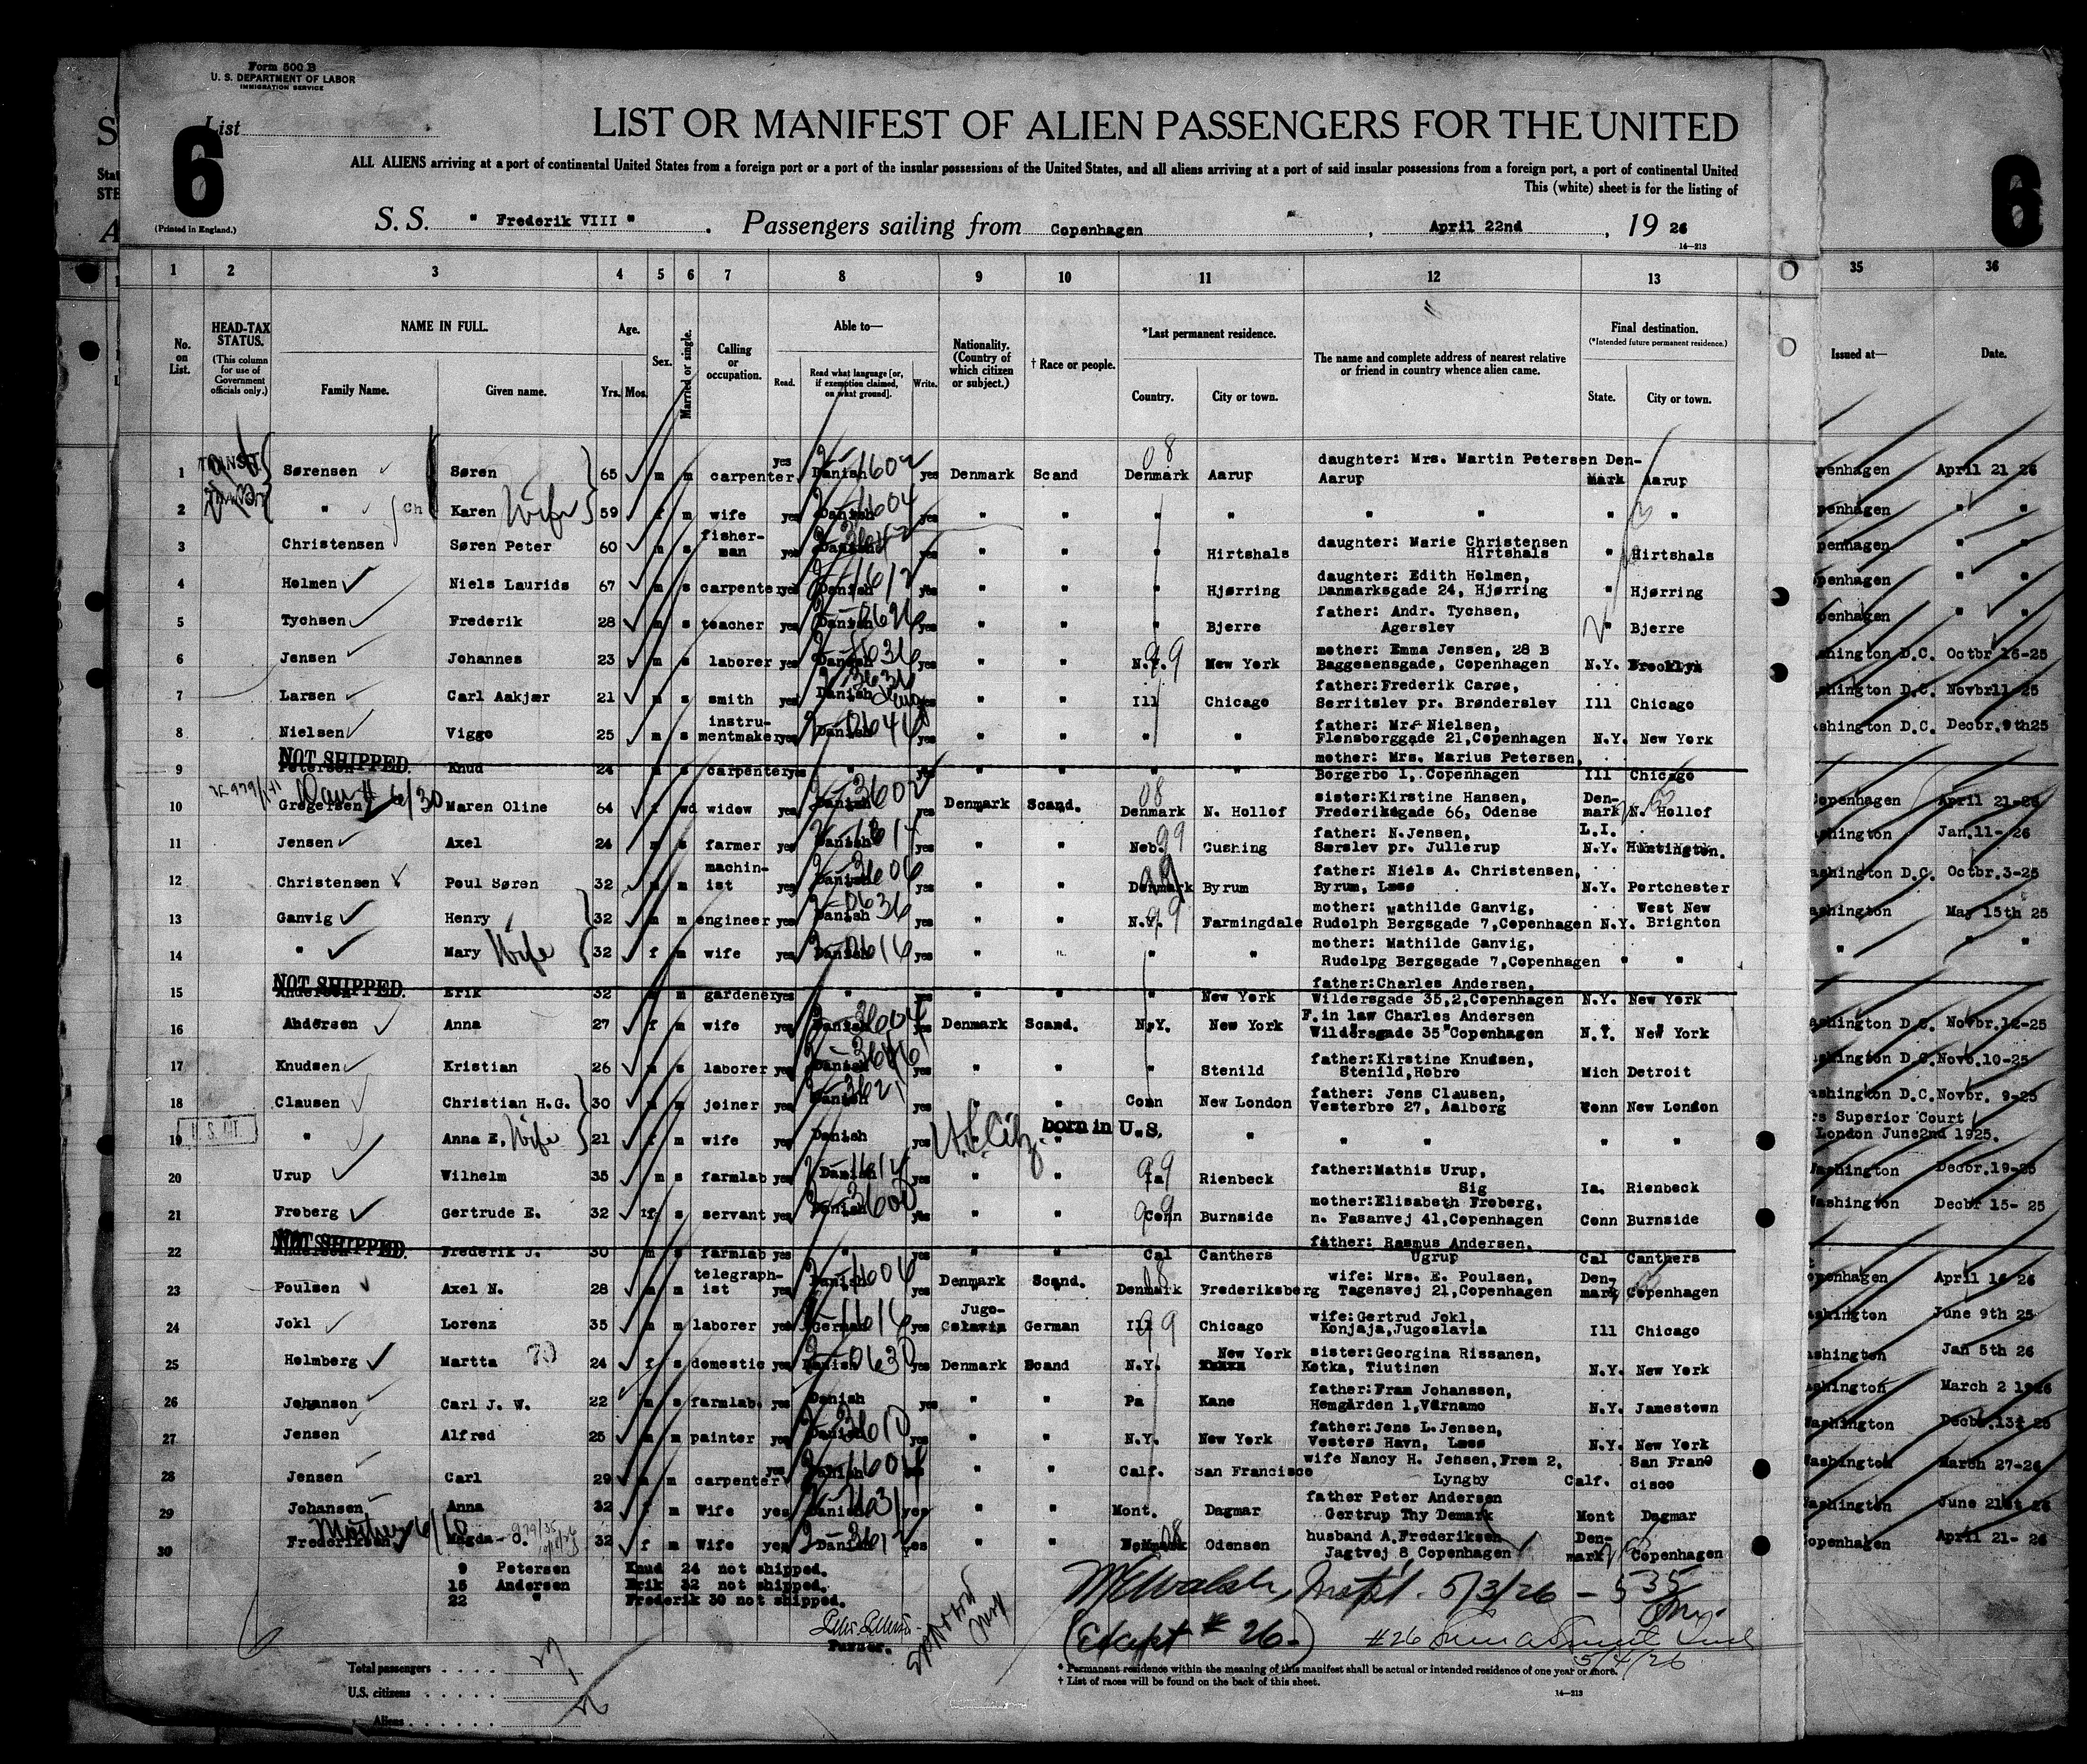 Form 500 B
U. S. DEPARTMENT OF LABOR
IMMIGRATION SERVICE
List
6
(Printed in England.)
LIST OR MANIFEST OF ALIEN PASSENGERS FOR THE UNITED
ALL ALIENS arriving at a port of continental United States from a foreign port or a port of the insular possessions of the United States, and all aliens arriving at a port of said insular possessions from a foreign port, a port of continental United
This (white) sheet is for the listing of
S. S. " Frederik VIII " . Passengers sailing from Copenhagen , April 22nd , 19 26
14—213
6
1 2 3 4 5 6 7 8 9 10 11 12 13 35 36
No. on List. HEAD-TAX STATUS. (This column for use of Government officials only.) NAME IN FULL. Family Name. Given name. Age. Yrs. Mos. Sex. Married or single. Calling or occupation. Able to— Read. Read what language [or, if exemption claimed, on what ground]. Write. Nationality. (Country of which citizen or subject.) † Race or people. *Last permanent residence. Country. City or town. The name and complete address of nearest relative or friend in country whence alien came. Final destination. (*Intended future permanent residence.) State. City or town. Issued at— Date.
1 Sørensen Søren 65 m m carpenter yes Danish yes Denmark Scand Denmark Aarup daughter: Mrs. Martin Petersen Aarup Den-Mark Aarup penhagen April 21 26
2 " Karen Wife 59 f m wife yes Danish yes " " " " " " " penhagen " "
3 Christensen Søren Peter 60 m s fisher-man yes Danish yes " " " Hirtshals daughter: Marie Christensen Hirtshals " Hirtshals penhagen " "
4 Holmen Niels Laurids 67 m s carpenter yes Danish yes " " " Hjørring daughter: Edith Holmen, Danmarksgade 24, Hjørring " Hjørring penhagen " "
5 Tychsen Frederik 28 m s teacher yes Danish yes " " " Bjerre father: Andr. Tychsen, Agerslev " Bjerre penhagen " "
6 Jensen Johannes 23 m s laborer yes Danish yes " " N.Y. New York mother: Emma Jensen, 28 B Baggesensgade, Copenhagen N.Y. Brooklyn shington D.C. Octbr 16-25
7 Larsen Carl Aakjær 21 m s smith yes Danish yes " " Ill Chicago father:Frederik Carøe, Serritslev pr. Brønderslev Ill Chicago shington D.C. Novbr11-25
8 Nielsen Viggo 25 m s instru-mentmaker yes Danish yes " " " " father: Mr. Nielsen, Flensborggade 21,Copenhagen N.Y. New York shington D.C. Decbr.9th25
NOT SHIPPED.
9 Petersen Knud 24 m s carpenter yes " yes " " " " mother: Mrs. Marius Petersen, Borgerbo 1, Copenhagen Ill Chicago
10 Gregersen Maren Oline 64 f wd widow yes Danish yes Denmark Scand. Denmark N. Hollof sister:Kirstine Hansen, Frederiksgade 66, Odense Den-mark N. Hollof Copenhagen April 21-26
11 Jensen Axel 24 m s farmer yes Danish yes " " Neb. Cushing father: N.Jensen, Særslev pr. Jullerup L.I. N.Y. Huntington. ashington Jan.11- 26
12 Christensen Poul Søren 32 m m machin-ist yes Danish yes " " Denmark Byrum father: Niels A. Christensen, Byrum, Læsø N.Y. Portchester ashington D.C. Octbr.3-25
13 Ganvig Henry 32 m m engineer yes Danish yes " " N.Y. Farmingdale mother: Mathilde Ganvig, Rudolph Bergsgade 7,Copenhagen N.Y. West New Brighton shington May 15th 25
14 " Mary Wife 32 f m wife yes Danish yes " " " " mother: Mathilde Ganvig, Rudolpg Bergsgade 7,Copenhagen " " " "
NOT SHIPPED.
15 Andersen Erik 32 m m gardener yes " yes " " " New York father:Charles Andersen, Wildersgade 35,2,Copenhagen N.Y. New York
16 Andersen Anna 27 f m wife yes Danish yes Denmark Scand. N.Y. New York F.in law Charles Andersen Wildersgade 35 Copenhagen N.Y. New York shington D.C. Novbr.12-25
17 Knudsen Kristian 26 m s laborer yes Danish yes " " " Stenild father:Kirstine Knudsen, Stenild,Hobro Mich Detroit shington D.C.Novb.10-25
18 Clausen Christian H.G. 30 m m joiner yes Danish yes " " Conn New London father: Jens Clausen, Vesterbro 27, Aalborg Conn New London ashington D.C.Novbr. 9-25
19 " Anna E. Wife 21 f m wife Danish yes U.S. Citz. born in U.S. " " " " " rs Superior Court London June2nd 1925.
20 Urup Wilhelm 35 m s farmlab yes Danish yes " " Ia Rienbeck father:Mathis Urup, Sig Ia. Rienbeck ashington Decbr.19-25
21 Froberg Gertrude E. 32 f s servant yes Danish yes " " Conn Burnside mother:Elisabeth Froberg, n. Fasanvej 41,Copenhagen Conn Burnside ashington Decbr 15- 25
NOT SHIPPED.
22 Andersen Frederik J. 30 m s farmlab yes " yes " " Cal Canthers father: Rasmus Andersen, Ugrup Cal Canthers
23 Poulsen Axel N. 28 m m telegraph-ist yes Danish yes Denmark Scand. Denmark Frederiksberg wife: Mrs. E. Poulsen, Tagensvej 21,Copenhagen Den-mark Copenhagen openhagen April 16 26
24 Jokl Lorenz 35 m m laborer yes German yes Jugo-Oslavia German Ill Chicago wife:Gertrud Jokl, Konjaja,Jugoslavia Ill Chicago ashington June 9th 25
25 Holmberg Martta 24 f s domestic yes Danish yes Denmark Scand N.Y. New York sister:Georgina Rissanen, Kotka, Tiutinen N.Y. New York shington Jan 5th 26
26 Johanson Carl J. W. 22 m s farmlab. yes Danish yes " " Pa Kane father:Fram Johansson, Hemgården 1,Värnamo N.Y. Jamestown shington March 2 1926
27 Jensen Alfred 25 m m painter yes Danish yes " " N.Y. New York father:Jens L.Jensen, Vesterø Havn, Læsø N.Y. New York ashington Decbr.13t 25
28 Jensen Carl 29 m m carpenter yes Danish yes " " Calf. San Francisco wife Nancy H. Jensen,Frem 2, Lyngby Calf. San Franc cisco ashington March 27-26
29 Johansen Anna 32 f m Wife yes Danish yes " " Mont. Dagmar father Peter Andersen Gertrup Thy Demark Mont Dagmar ashington June 21st 26
30 Frederiksen Magda 32 f m Wife yes Danish yes " " Odensen husband A.Frederiksen Jagtvej 8 Copenhagen Den-mark Copenhagen openhagen April 21- 26
9 Petersen Knud 24 not shipped.
15 Andersen Erik 32 not shipped.
22 " Frederik 30 not shipped.
Purser.
McWalsh, Inspt. 5/3/26
(Except # 26.)
#26
5/4/26
Total passengers . . . . 27
U.S. citizens . . . . . .
Aliens . . . . . . 26
* Permanent residence within the meaning of this manifest shall be actual or intended residence of one year or more.
† List of races will be found on the back of this sheet.
14—213